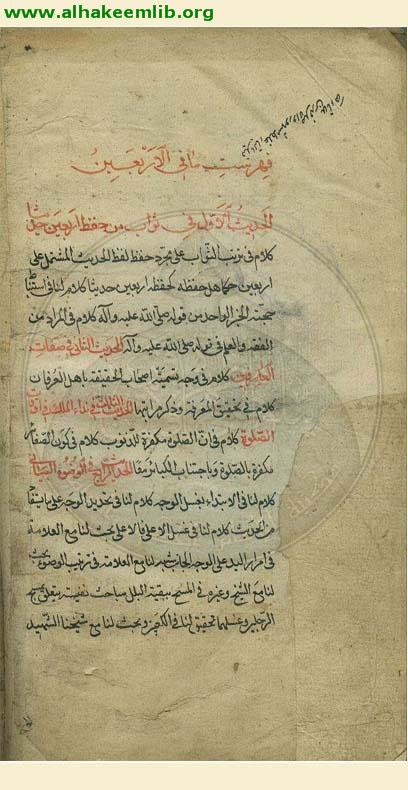 www.alhakeemlib.org
فهرست ما في الاربعين
الحديث الاول في ثواب من حفظ اربعين حديثا
كلام في ترتب الثواب على مجرد حفظ لفظ الحديث المشتمل على
اربعين حكما هل حفظه كحفظ اربعين حديثا كلام لنا في استنباط
حجية الخبر الواحد من قوله صلى الله عليه وآله كلام في المراد من
الفقه والعلم في قوله صلى الله عليه وآله الحديث الثاني في صفات
العارفين كلام في وجه تسمية اصحاب الحقيقة باهل العرفان
كلام في تحقيق المعرفة وذكر مراتبها الحديث الثالث في نداء الملك في اوقات
الصلوة كلام في ان الصلوة مكفرة للذنوب كلام في كون الصغائر
مكفرة بالصلوة وباجتناب الكبائر معا الحديث الرابع في الوضوء البياني
كلام لنا في الابتداء بغسل الوجه كلام لنا في تحديد الوجه على ما يتفاد
من الحديث كلام لنا في غسل الاعلى فالاعلى بحث لنا مع العلامة
في امرار اليد على الوجه بحث لنا مع العلامة في ترتيب الوضوء بحث
لنا مع الشيخ وغيره في المسح ببقية البلل مباحث نفيسة يتعلق بمسح
الرجلين وغسلهما تحقيق لنا في الكعبين وبحث لنا مع شيخنا الشهيد